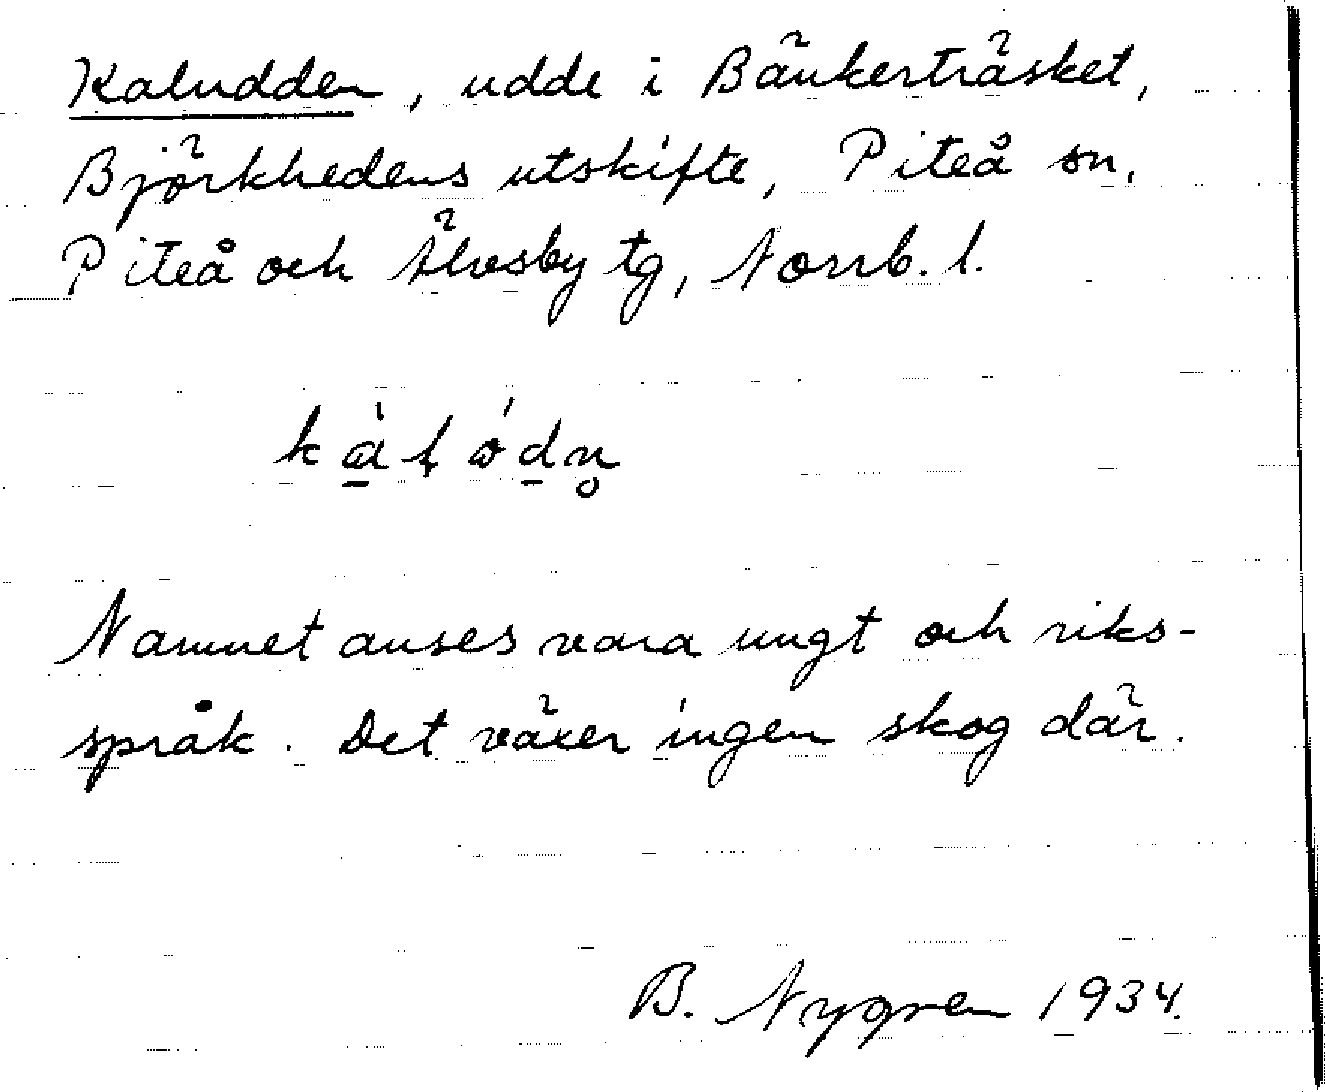 Kaludden, udde i Bänkerträsket,
Björkhedens utskifte, Piteå sn,
Piteå och Älvsby tg, Norrb. l.
Namnet anses vara ungt och riks-
språk. Det växer ingen skog där.
B. Nygren 1934.